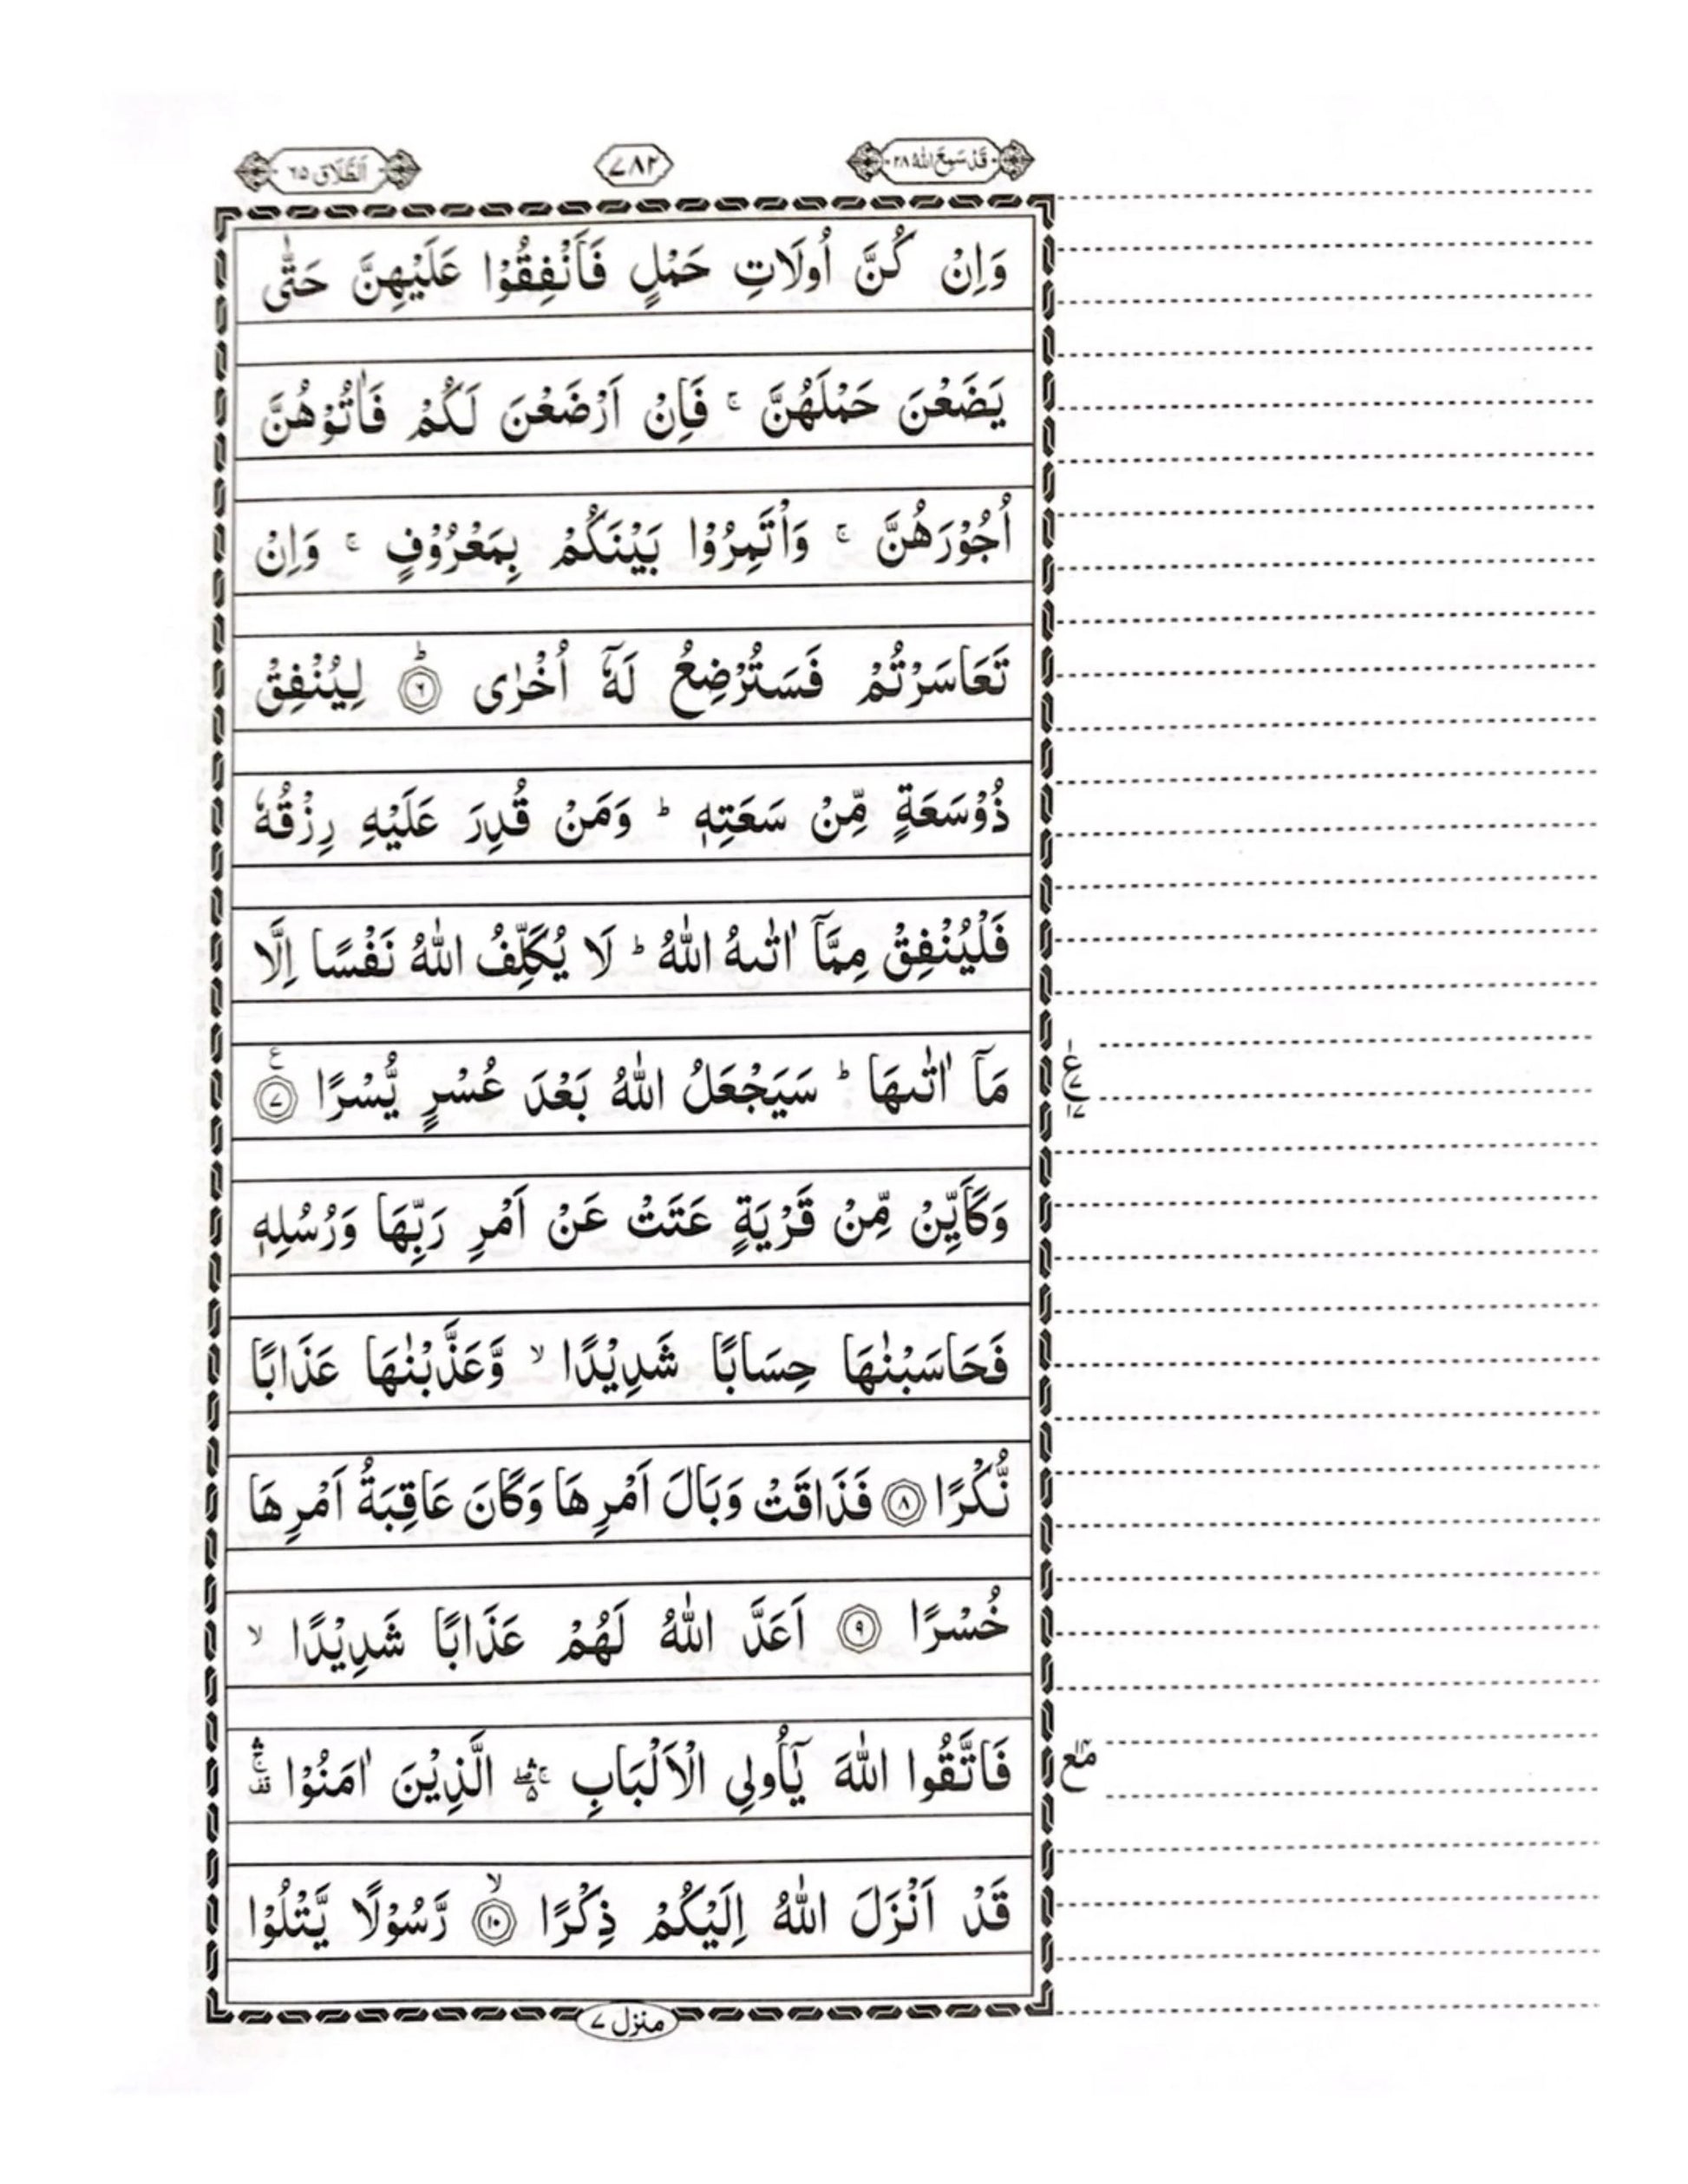 قَدْ سَمِعَ اللّٰهُ ٢٨
٧٨٢
اَلطَّلَاق ٦٥
وَاِنْ كُنَّ اُولَاتِ حَمْلٍ فَاَنْفِقُوْا عَلَيْهِنَّ حَتّٰى
يَضَعْنَ حَمْلَهُنَّ ۚ فَاِنْ اَرْضَعْنَ لَكُمْ فَاٰتُوْهُنَّ
اُجُوْرَهُنَّ ۚ وَاْتَمِرُوْا بَيْنَكُمْ بِمَعْرُوْفٍ ۚ وَاِنْ
تَعَاسَرْتُمْ فَسَتُرْضِعُ لَهٗٓ اُخْرٰى ؕ ۝٦ لِيُنْفِقْ
ذُوْسَعَةٍ مِّنْ سَعَتِهٖ ؕ وَمَنْ قُدِرَ عَلَيْهِ رِزْقُهٗ
فَلْيُنْفِقْ مِمَّآ اٰتٰىهُ اللّٰهُ ؕ لَا يُكَلِّفُ اللّٰهُ نَفْسًا اِلَّا
مَآ اٰتٰىهَا ؕ سَيَجْعَلُ اللّٰهُ بَعْدَ عُسْرٍ يُّسْرًا ۝٧ ع
وَكَاَيِّنْ مِّنْ قَرْيَةٍ عَتَتْ عَنْ اَمْرِ رَبِّهَا وَرُسُلِهٖ
فَحَاسَبْنٰهَا حِسَابًا شَدِيْدًا ۙ وَّعَذَّبْنٰهَا عَذَابًا
نُّكْرًا ۝٨ فَذَاقَتْ وَبَالَ اَمْرِهَا وَكَانَ عَاقِبَةُ اَمْرِهَا
خُسْرًا ۝٩ اَعَدَّ اللّٰهُ لَهُمْ عَذَابًا شَدِيْدًا ۙ
فَاتَّقُوا اللّٰهَ يٰٓاُولِى الْاَلْبَابِ ۚ الَّذِيْنَ اٰمَنُوْا
قَدْ اَنْزَلَ اللّٰهُ اِلَيْكُمْ ذِكْرًا ۙ ۝١٠ رَّسُوْلًا يَّتْلُوْا
منزل ٧